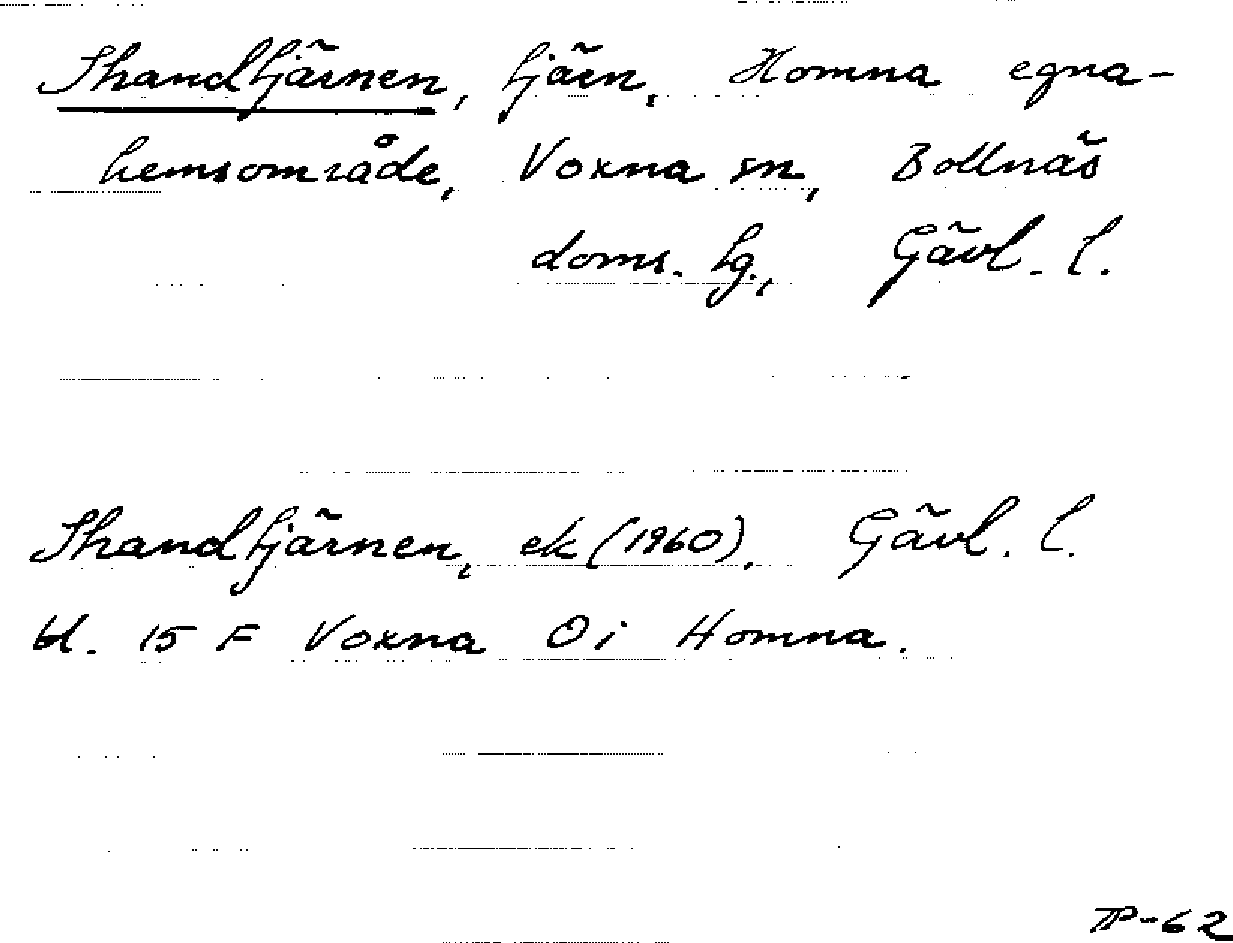 Strandtjärnen, tjärn, Homna egna-
hemsområde, Voxna sn, Bollnäs
doms. tg., Gävl. l.
Strandtjärnen, ek (1960). Gävl. l.
bl. 15 F Voxna 0 i Homna.
TP-62